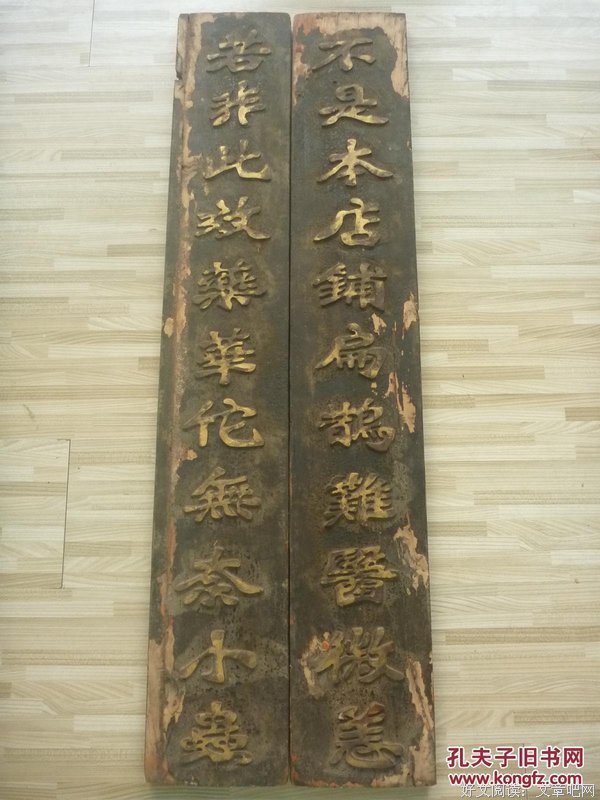 不是本店鋪扁鵲難醫微恙
若非此效藥華佗無奈小蟲
孔夫子旧书网
www.kongfz.com
好文阅读：文章吧网